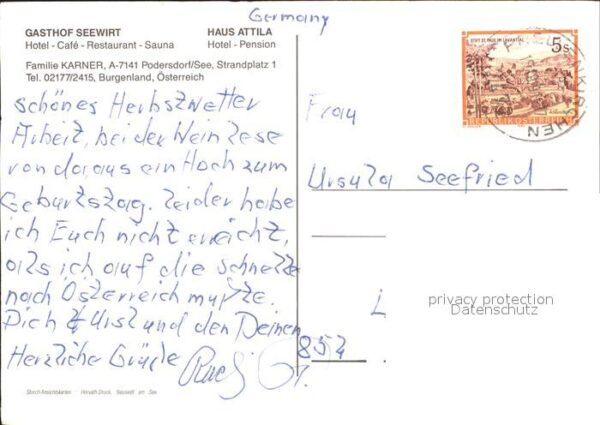 Germany
GASTHOF SEEWIRT
Hotel - Café - Restaurant - Sauna
HAUS ATTILA
Hotel - Pension
Familie KARNER, A-7141 Podersdorf/See, Strandplatz 1
Tel. 02177/2415, Burgenland, Österreich
schönes Herbstwetter
Arbeit, bei der Weinlese
von da aus ein Hoch zum
Geburtstag. Leider habe
ich Euch nicht erreicht,
als ich auf die schnelle
nach Österreich mußte.
Dich & Ursl und den Deinen
Herzliche Grüße
Frau
Ursula Seefried
852
STIFT ST. PAUL IM LAVANTTAL
5s
REPUBLIK ÖSTERREICH
privacy protection
Datenschutz
Storch-Ansichtskarten · Horvath Druck, Neusiedl am See